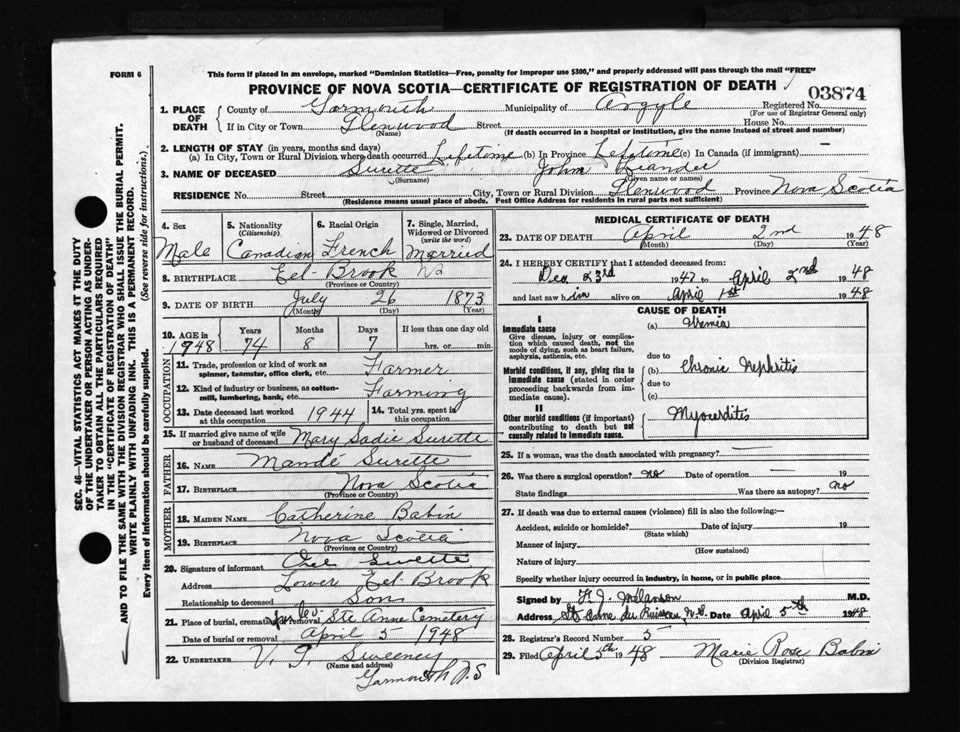 FORM 6
This form if placed in an envelope, marked "Dominion Statistics—Free, penalty for improper use $300," and properly addressed will pass through the mail "FREE"
PROVINCE OF NOVA SCOTIA—CERTIFICATE OF REGISTRATION OF DEATH
03874
1. PLACE OF DEATH
County of Yarmouth Municipality of Argyle Registered No.
(For use of Registrar General only)
If in City or Town Glenwood Street House No.
(Name) (If death occurred in a hospital or institution, give the name instead of street and number)
2. LENGTH OF STAY (in years, months and days)
(a) In City, Town or Rural Division where death occurred Lifetime (b) In Province Lifetime (c) In Canada (if immigrant) —
3. NAME OF DECEASED Surette John
(Surname) (Given name or names)
RESIDENCE No. Street City, Town or Rural Division Glenwood Province Nova Scotia
(Residence means usual place of abode. Post Office Address for residents in rural parts not sufficient)
SEC. 46—VITAL STATISTICS ACT MAKES IT THE DUTY
OF THE UNDERTAKER OR PERSON ACTING AS UNDER-
TAKER TO OBTAIN ALL THE PARTICULARS REQUIRED
IN THE "CERTIFICATE OF REGISTRATION OF DEATH"
AND TO FILE THE SAME WITH THE DIVISION REGISTRAR WHO SHALL ISSUE THE BURIAL PERMIT.
WRITE PLAINLY WITH UNFADING INK. THIS IS A PERMANENT RECORD.
Every item of information should be carefully supplied. (See reverse side for instructions.)
4. Sex
Male
5. Nationality
(Citizenship)
Canadian
6. Racial Origin
French
7. Single, Married,
Widowed or Divorced
(write the word)
Married
8. BIRTHPLACE Eel-Brook NS
(Province or Country)
9. DATE OF BIRTH July 26 1873
(Month) (Day) (Year)
10. AGE in Years Months Days If less than one day old
1948 74 8 7 hrs. or min.
OCCUPATION
11. Trade, profession or kind of work as
spinner, teamster, office clerk, etc. Farmer
12. Kind of industry or business, as cotton-
mill, lumbering, bank, etc. Farming
13. Date deceased last worked
at this occupation 1944
14. Total yrs. spent in
this occupation
15. If married give name of wife
or husband of deceased Mary Sadie Surette
FATHER
16. NAME Mandé Surette
17. BIRTHPLACE Nova Scotia
(Province or Country)
MOTHER
18. MAIDEN NAME Catherine Babin
19. BIRTHPLACE Nova Scotia
(Province or Country)
20. Signature of informant Surette
Address Lower Eel-Brook
Relationship to deceased Son
21. Place of burial, cremation or removal Ste Anne Cemetery
Date of burial or removal April 5 1948
22. UNDERTAKER V. J. Sweeney
(Name and address)
Yarmouth N.S
MEDICAL CERTIFICATE OF DEATH
23. DATE OF DEATH April 2nd 1948
(Month) (Day) (Year)
24. I HEREBY CERTIFY that I attended deceased from:
Dec 23rd 1947 to April 2nd 1948
and last saw him alive on April 1st 1948
CAUSE OF DEATH
I
Immediate cause
Give disease, injury or complica-
tion which caused death, not the
mode of dying, such as heart failure,
asphyxia, asthenia, etc.
(a) Uremia
due to
Morbid conditions, if any, giving rise to
immediate cause (stated in order
proceeding backwards from im-
mediate cause).
(b) Chronic Nephritis
due to
(c)
II
Other morbid conditions (if important)
contributing to death but not
causally related to immediate cause.
Myocarditis
25. If a woman, was the death associated with pregnancy? —
26. Was there a surgical operation? no Date of operation — 19
State findings Was there an autopsy? no
27. If death was due to external causes (violence) fill in also the following:—
Accident, suicide or homicide? Date of injury 19
(State which)
Manner of injury
(How sustained)
Nature of injury
Specify whether injury occurred in industry, in home, or in public place.
Signed by F. J. Melanson M.D.
Address Ste Anne du Ruisseau, N.S. Date April 5th 1948
28. Registrar's Record Number 5
29. Filed April 5th 1948 Marie Rose Babin
(Division Registrar)